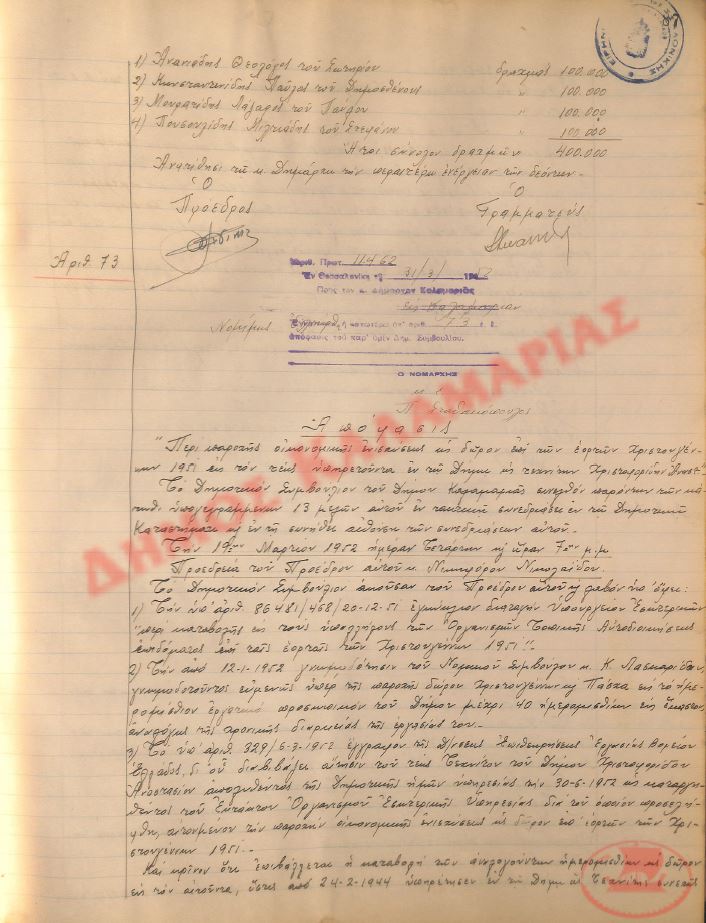 1) Ἀνανιάδης Θεολόγος τοῦ Σωτηρίου δραχμάς 100.000
2) Κωνσταντινίδης Παῦλος τοῦ Δημοσθένους " 100.000
3) Μουρατίδης Λάζαρος τοῦ " 100.000
4) Μιλτιάδης τοῦ Στεφάνου 100.000
Ἤτοι σύνολον δραχμῶν 400.000
Ἀνατίθησι τῷ κ. Δημάρχῳ τὴν περαιτέρω ἐνέργειαν τῶν δεόντων.-
Ὁ Ὁ
Πρόεδρος Γραμματεύς
Ἀριθ. 73
Ἀριθ. Πρωτ. 11462
Ἐν Θεσσαλονίκῃ τῇ 31/3/1952
Πρὸς τὸν κ. Δήμαρχον Καλαμαριᾶς
εἰς Καλαμαριάν
Νομίμως ἡ κατωτέρω ὑπ' ἀριθ. 73 ἐ. ἔ.
ἀπόφασις τοῦ παρ' ὑμῖν Δημ. Συμβουλίου.
Ο ΝΟΜΑΡΧΗΣ
Ἀπόφασις
"Περὶ παροχῆς οἰκονομικῆς ἐνισχύσεως ὡς δῶρον ἐπὶ τῶν ἑορτῶν Χριστουγέν-
νων 1951 εἰς τὸν τέως ὑπηρετοῦντα ἐν τῷ Δήμῳ ὡς τεχνίτην Χριστοφορίδην Ἀναστ."
Τὸ Δημοτικὸν Συμβούλιον τοῦ Δήμου Καλαμαριᾶς συνελθὸν παρόντων τῶν κά-
τωθι ὑπογεγραμμένων 13 μελῶν αὐτοῦ ἐν τακτικῇ συνεδριάσει ἐν τῷ Δημοτικῷ
Καταστήματι κ ἐν τῇ συνήθει αἰθούσῃ τῶν συνεδριάσεων αὐτοῦ.-
Τὴν 19ην Μαρτίου 1952 ἡμέραν Τετάρτην κ ὥραν 7ην μ.μ.
Προεδρείᾳ τοῦ Προέδρου αὐτοῦ κ. Νικηφόρου Νικολαΐδου.
Τὸ Δημοτικὸν Συμβούλιον ἀκοῦσαν τοῦ Προέδρου αὐτοῦ κ λαβὸν ὑπ' ὄψει:
1) Τὴν ὑπ' ἀριθ. 86481/468/20-12-51 ἐγκύκλιον διαταγὴν Ὑπουργείου Ἐσωτερικῶν
"περὶ καταβολῆς εἰς τοὺς ὑπαλλήλους τῶν Ὀργανισμῶν Τοπικῆς Αὐτοδιοικήσεως
ἐπιδόματος ἐπὶ ταῖς ἑορταῖς τῶν Χριστουγέννων 1951".-
2) Τὴν ἀπὸ 12-1-1952 γνωμοδότησιν τοῦ Νομικοῦ Συμβούλου κ. Κ. Λασκαρίδου,
γνωμοδοτοῦντος εὐμενῶς ὑπὲρ τῆς παροχῆς δώρου Χριστουγέννων κ Πάσχα εἰς τὸ ἡμε-
ρομίσθιον ἐργατικὸ προσωπικὸν τοῦ Δήμου μέχρι 40 ἡμερομισθίων εἰς ἕκαστον,
ἀναλόγως τῆς χρονικῆς διαρκείας τῆς ἐργασίας του.-
3) Τὸ ὑπ' ἀριθ. 329/6-3-1952 ἔγγραφον τῆς Δ/νσεως Ἐπιθεωρήσεως Ἐργασίας Βορείου
Ἑλλάδος, δι' οὗ διαβιβάζει αἴτησιν τοῦ τέως Τεχνίτου τοῦ Δήμου Χριστοφορίδου
Ἀναστασίου ἀπολυθέντος τῆς Δημοτικῆς ἡμῶν ὑπηρεσίας τὴν 30-6-1952 ὡς καταργη-
θέντος τοῦ Ἐκτάκτου Ὀργανισμοῦ Ἐσωτερικῆς Ὑπηρεσίας διὰ τοῦ ὁποίου προσελή-
φθη, αἰτουμένου τὴν παροχὴν οἰκονομικῆς ἐνισχύσεως ὡς δῶρον ἐπ' ἑορτῶν τῶν Χρι-
στουγέννων 1951.-
Καὶ κρίνον ὅτι ἐπιβάλλεται ἡ καταβολὴ τῶν ἀναλογούντων ἡμερομισθίων ὡς δῶρον
εἰς τὸν αἰτοῦντα, ὅστις ἀπὸ 24-2-1944 ὑπηρέτησεν ἐν τῷ Δήμῳ ὡς Τεχνίτης συνεχῶς
ΔΗΜΟΣ ΚΑΛΑΜΑΡΙΑΣ